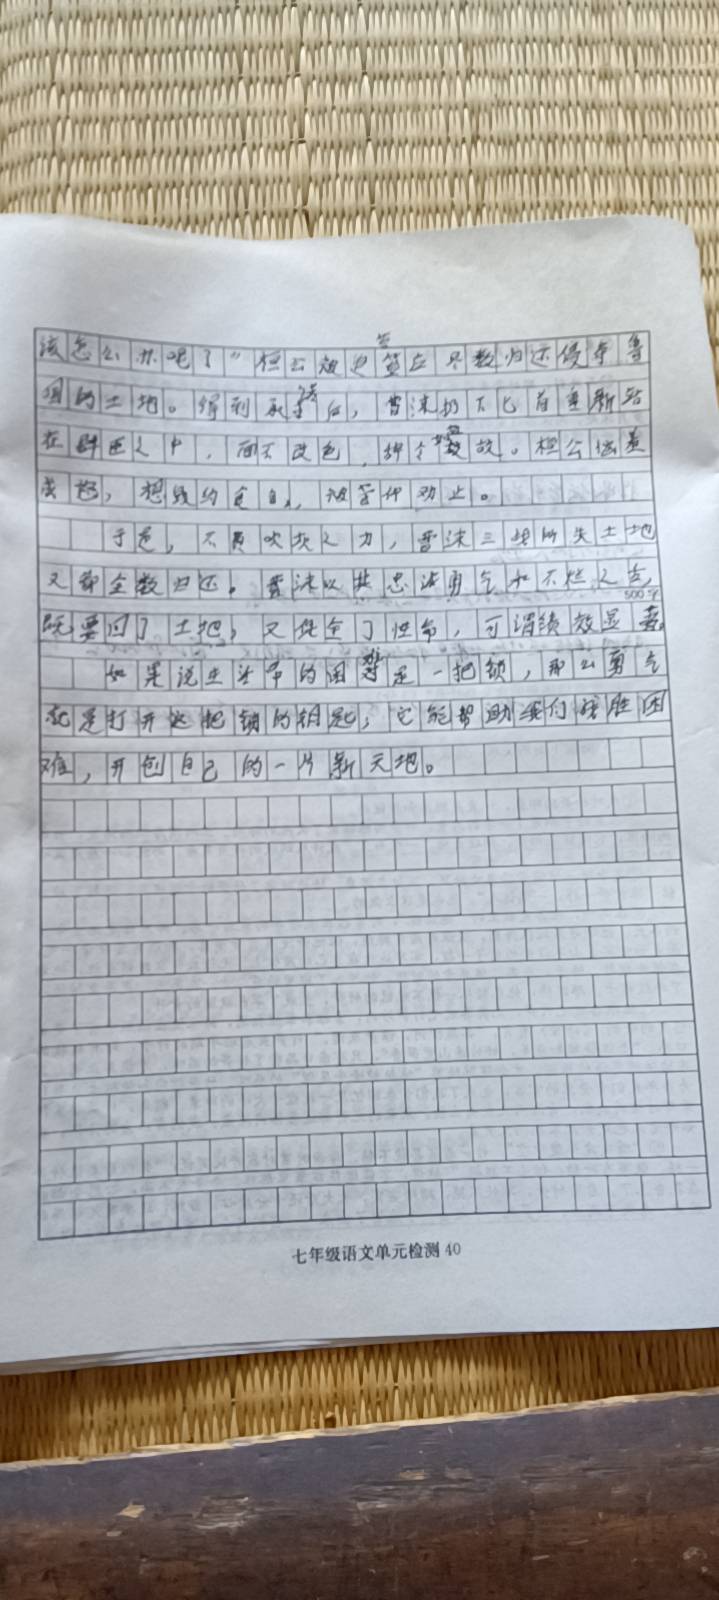 该怎么办吧了”桓公被迫答应尽数归还侵夺鲁
国的土地。得到承诺后，曹沫扔下匕首重新站
在群臣之中，面不改色，辞令如故。桓公恼羞
成怒，想毁约食言，被管仲劝止。
于是，不费吹灰之力，曹沫三战所失土地
又都全数归还。曹沫以其忠诚勇气和不烂之舌，
500字
既要回了土地，又保全了性命，可谓绩效显著。
如果说生活中的困难是一把锁，那么勇气
就是打开这把锁的钥匙，它能帮助我们战胜困
难，开创自己的一片新天地。
七年级语文单元检测 40